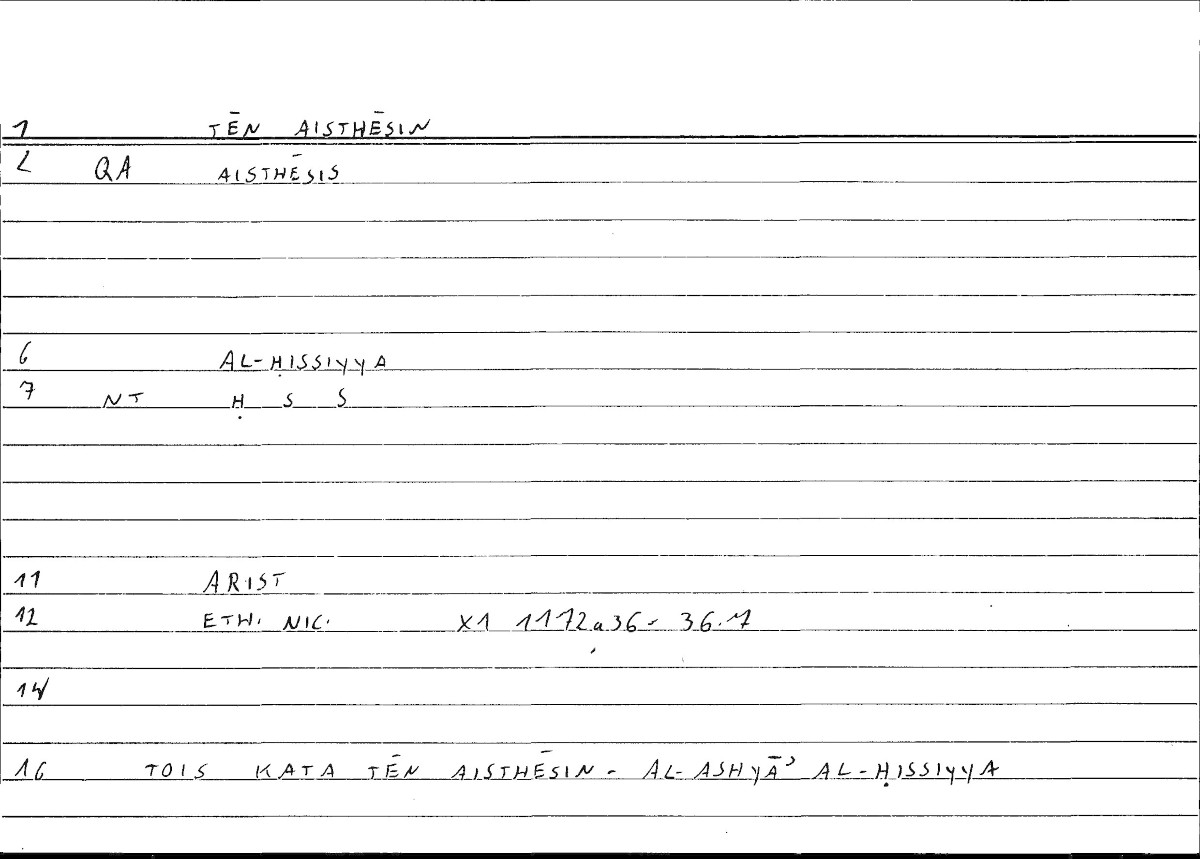 1 TĒN AISTHĒSIN
2 QA AISTHĒSIS
6 AL-ḤISSIYYA
7 NT Ḥ S S
11 ARIST
12 ETH. NIC. X1 1172a36- 36.7
14
16 TOIS KATA TĒN AISTHĒSIN - AL-ASHYĀʾ AL-ḤISSIYYA